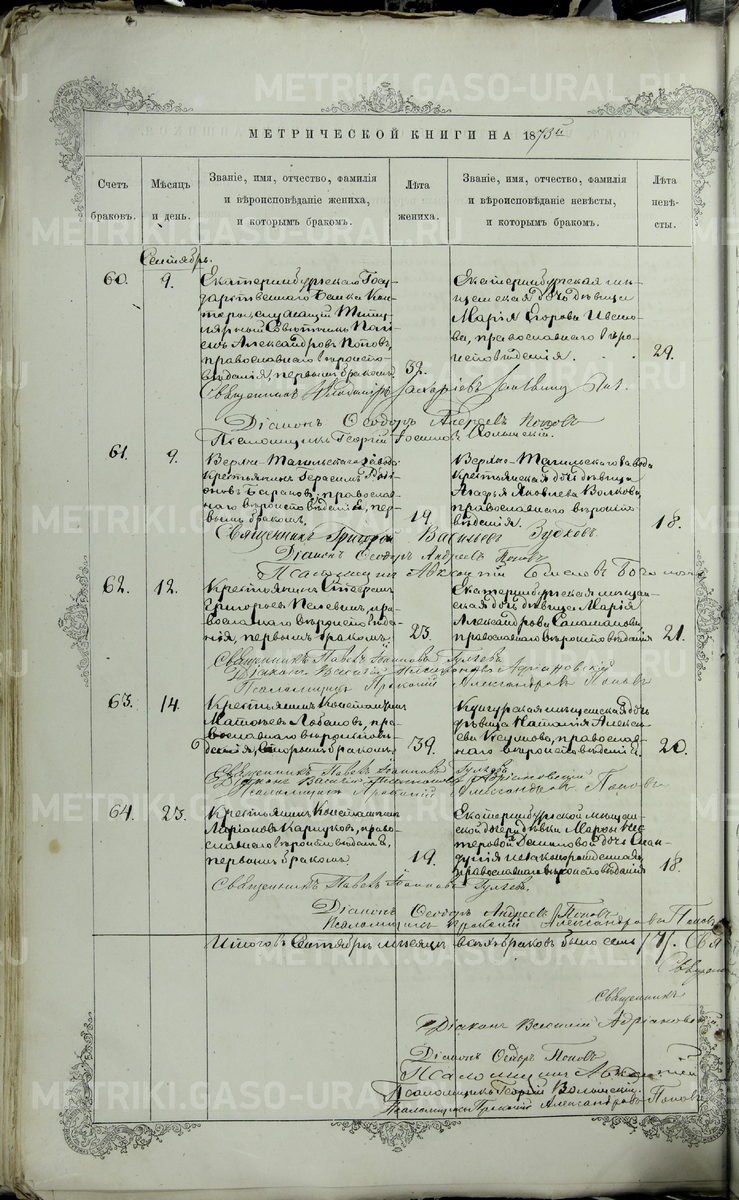 МЕТРИЧЕСКОЙ КНИГИ НА 1873й
Счетъ браковъ.
Мѣсяцъ и день.
Званіе, имя, отчество, фамилія
и вѣроисповѣданіе жениха,
и которымъ бракомъ.
Лѣта жениха.
Званіе, имя, отчество, фамилія
и вѣроисповѣданіе невѣсты,
и которымъ бракомъ.
Лѣта невѣ-
сты.
Сентябрь.
60.
9.
Екатеринбургскаго Госу-
дарственнаго Банка Кон-
торы, служащій Титу-
лярный Совѣтникъ Павелъ
Александровъ Поповъ,
православнаго вѣроиспо-
вѣданія, первымъ бракомъ
32.
Екатеринбургская мѣ-
щанская дочь дѣвица
Марія Егорова
православнаго вѣро-
исповѣданія.
29.
Священникъ
Діаконъ Ѳеодоръ Андреевъ Поповъ
Псаломщикъ Георгій Волынскій.
61.
9.
Верхне-Тагильскаго завода
крестьянинъ Герасимъ
Барановъ, православ-
наго вѣроисповѣданія, пер-
вымъ бракомъ,
19.
Верхне-Тагильскаго завода
крестьянская дочь дѣвица
Агафья Яковлева Волкова,
православнаго вѣроиспо-
вѣданія.
18.
Священникъ Григорій Васильевъ Зубковъ.
Діаконъ Ѳеодоръ Андреевъ Поповъ
Псаломщикъ
62.
12.
Крестьянинъ
Григорьевъ пра-
вославнаго вѣроисповѣда-
нія, первымъ бракомъ.
23.
Екатеринбургская мѣщан-
ская дочь дѣвица Марія
Александрова
православнаго вѣроисповѣданія
21.
Священникъ Павелъ Іоанновъ Гуляевъ
Діаконъ Василій Адріановскій
Псаломщикъ Прокопій Александровъ Поповъ
63.
14.
Крестьянинъ Константинъ
Матвѣевъ Лобановъ, пра-
вославнаго вѣроисповѣ-
данія, вторымъ бракомъ.
39.
Кунгурская мѣщанская дочь
дѣвица Наталія Алексѣ-
ева православ-
наго вѣроисповѣданія.
20.
Священникъ Павелъ Іоанновъ Гуляевъ
Діаконъ Василій Адріановскій
Псаломщикъ Прокопій Александровъ Поповъ
64.
23.
Крестьянинъ Константинъ
Ларіоновъ право-
славнаго вѣроисповѣданія,
первымъ бракомъ
19.
Екатеринбургской мѣщан-
ской дочери дѣвки Марѳы Нес-
теровой дочь
незаконнорожденная,
православнаго вѣроисповѣданія
18.
Священникъ Павелъ Іоанновъ Гуляевъ.
Діаконъ Ѳеодоръ Андреевъ Поповъ
Псаломщикъ Прокопій Александровъ Поповъ
Итого въ Сентябрѣ мѣсяцѣ всѣхъ браковъ было семь /7/.
Священникъ
Діаконъ Василій Адріановскій
Діаконъ Ѳеодоръ Поповъ
Псаломщикъ
Псаломщикъ Георгій Волынскій.
Псаломщикъ Прокопій Александровъ Поповъ
METRIKI.GASO-URAL.RU